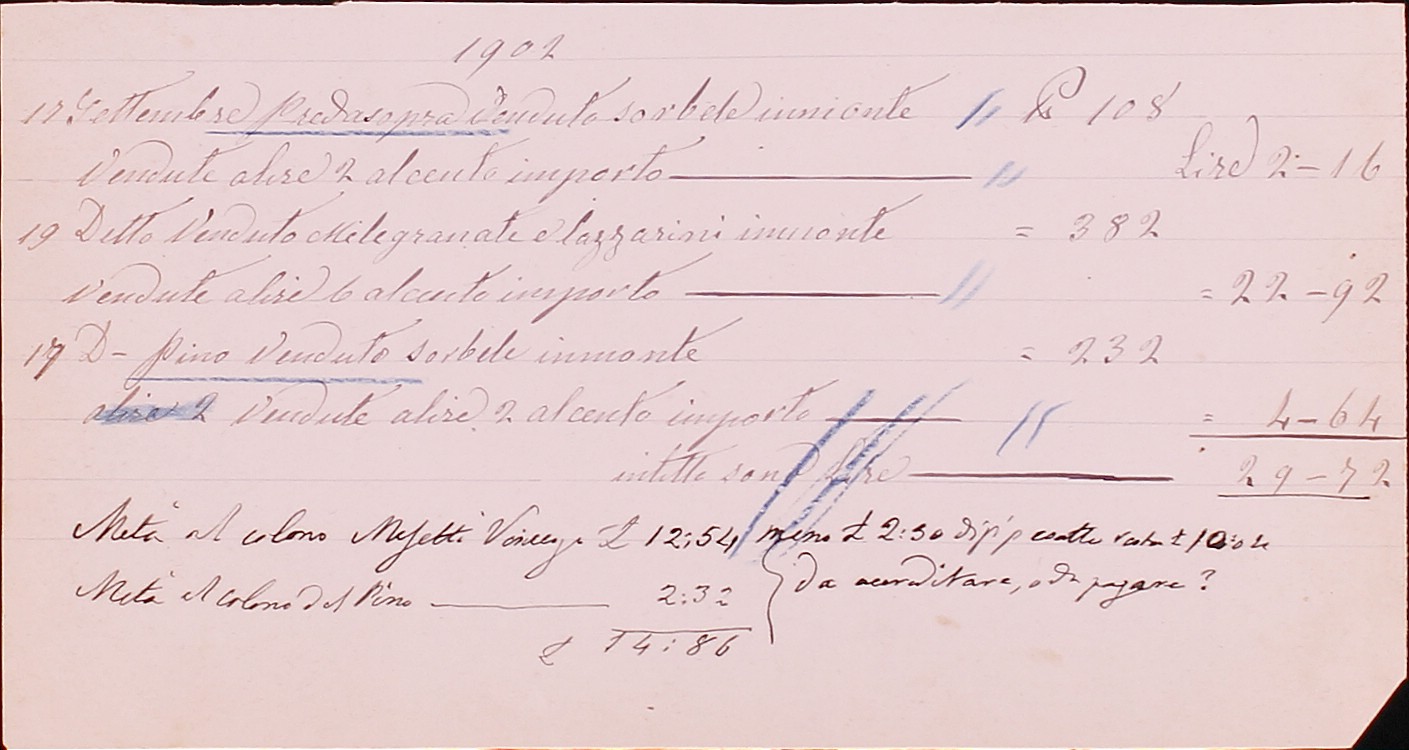 1902
17 Settembre Predasopra Venduto sorbele inmonte " 108
Vendute alire 2 alcento importo " Lire 2-16
19 Detto Venduto Milegranate e lazzarini inmonte = 382
Vendute alire 6 alcento importo " = 22-92
19 D- Pino Venduto sorbele inmonte = 232
alire 2 Vendute alire 2 alcento importo " = 4-64
intutto sono Lire 29-72
Metà al colono £ 12:54 meno £ 2:30 di più resta £ 10:
Metà al colono del Pino 2:32 da accreditare, o da pagare?
£ 14:86